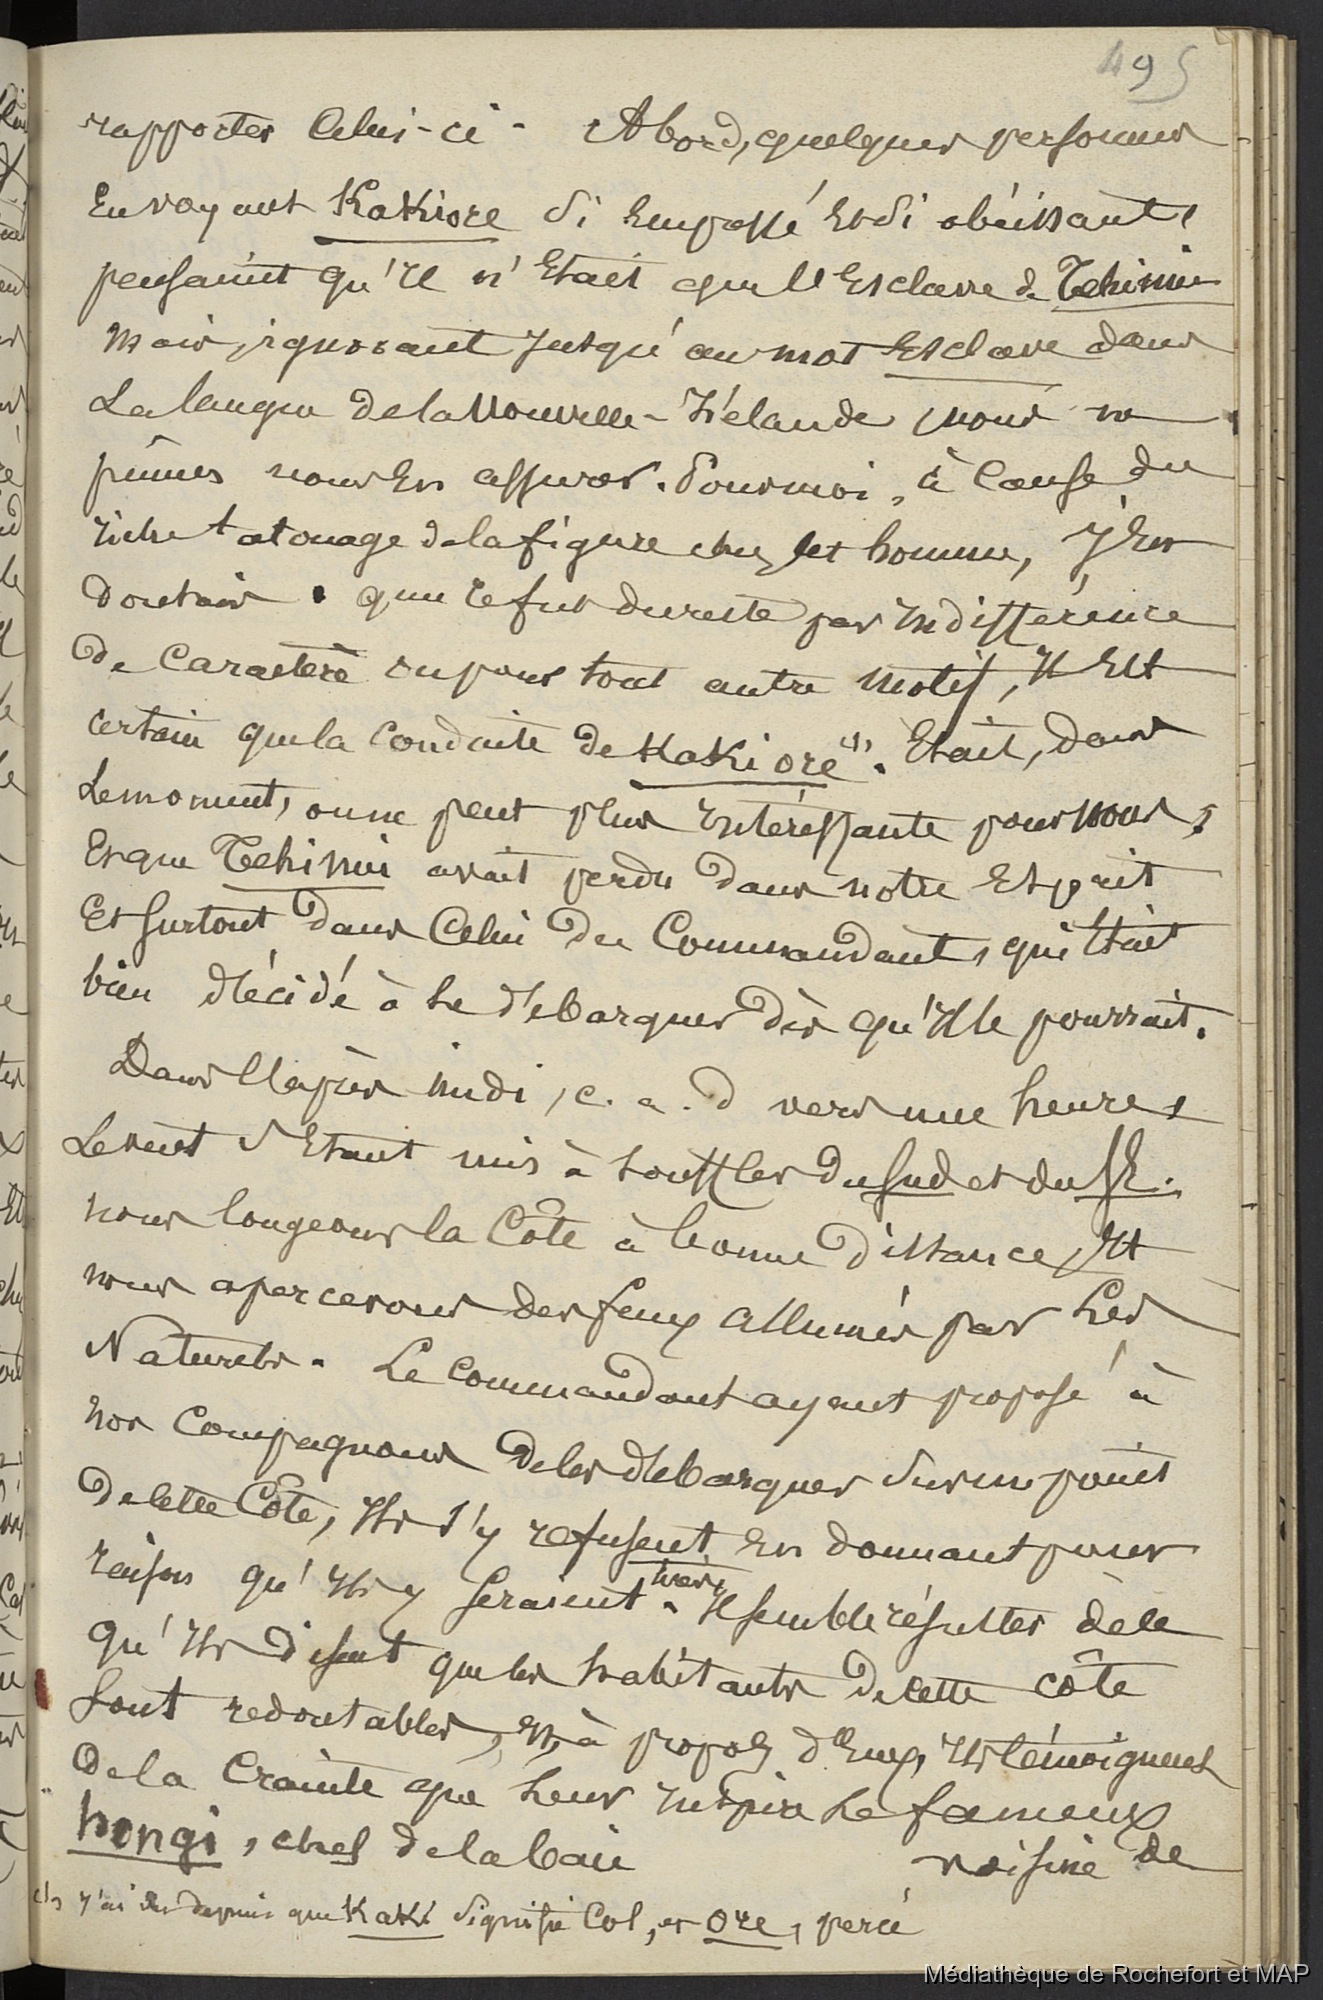 495
rapporter celui-ci - Abord, quelques personnes
En voyant Kakiore si Empressé Et si obéissant,
pensaient qu'Il n'Etait que l'Esclave de Tehinui
Mais, ignorant jusqu'au mot Esclave dans
La langue de la Nouvelle-Zélande, nous ne
pûmes nous En assurer. Pour moi, à Cause du
riche tatouage de la figure chez cet homme, J'En
doutais. que ce fut du reste par Indifférence
de Caractère ou pour tout autre Motif, Il Est
certain que la Conduite de Kakiore (1). Etait, dans
Le moment, on ne peut plus Intéressante pour nous,
Et que Tehinui avait perdu dans notre Esprit
Et surtout dans Celui du Commandant, qui Etait
bien décidé à Le débarquer dès qu'Il le pourrait.
Dans l'après midi, c. a. d vers une heure,
Le vent s'Etant mis à souffler du Sud et du SE.
nous longeons la Côte à bonne Distance, Et
nous apercevons des feux allumés par Les
Naturels. Le Commandant ayant proposé à
nos Compagnons de les débarquer sur un point
De cette Côte, Ils s'y refusent En donnant pour
raison qu'Ils y seraient tués. Il semble résulter de ce
qu'Ils disent que les habitants de cette côte
Sont redoutables, Et, à propos d'Eux, Ils témoignent
De la Crainte que Leur Inspire Le fameux
hongi, chef de la baie voisine de
(1) J'ai su depuis que Kaki signifie Col, et Ore, percé
Médiathèque de Rochefort et MAP